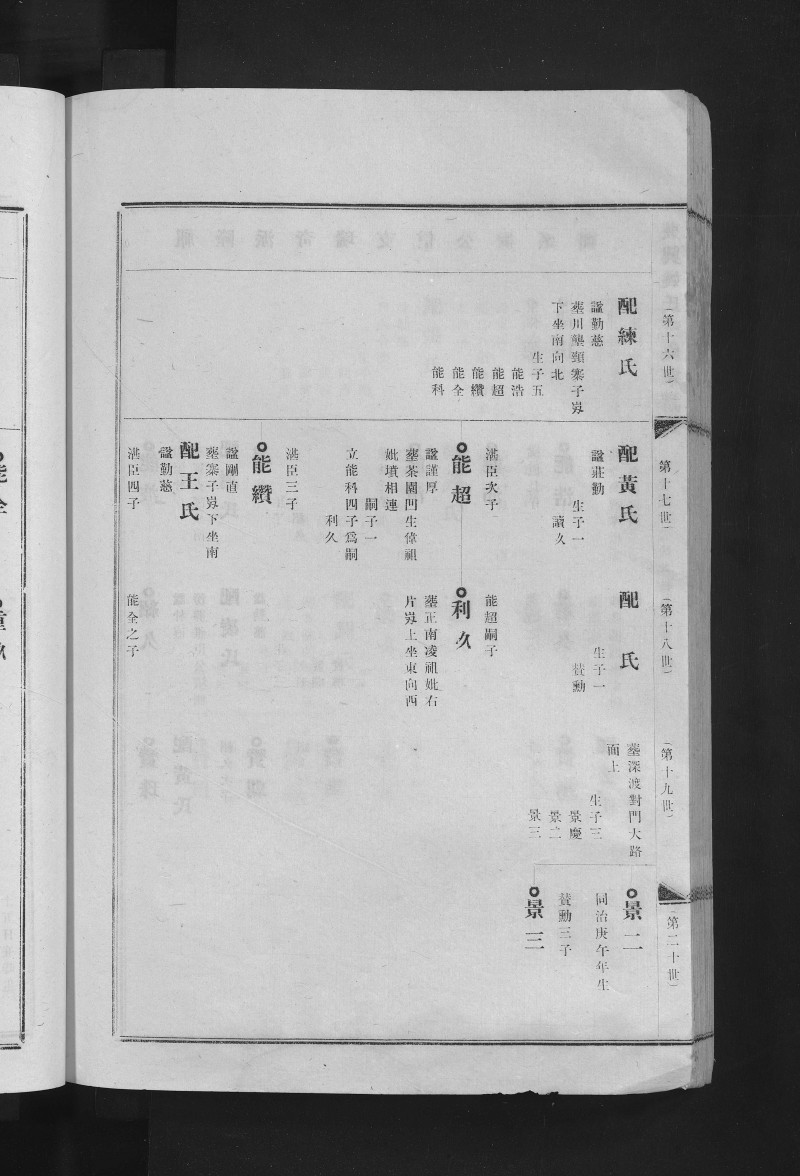 （第十六世）
配練氏
諡勤慈
塟川龔頸寨子嵏
下坐南向北
生子五
能浩
能超
能纘
能全
能科
（第十七世）
配黃氏
諡莊勤
生子一
讀久
湛臣次子
能超
諡謹厚
塟茶園凹生偉祖
妣墳相連
嗣子一
立能科四子爲嗣
利久
湛臣三子
能纘
諡剛直
塟寨子嵏下坐南
配王氏
諡勤慈
湛臣四子
（第十八世）
配　氏
生子一
贊勳
能超嗣子
利久
塟正南凌祖妣右
片嵏上坐東向西
能全之子
（第十九世）
塟深渡對門大路
面上
生子三
景慶
景二
景三
（第二十世）
景二
同治庚午年生
贊勳三子
景三
能全